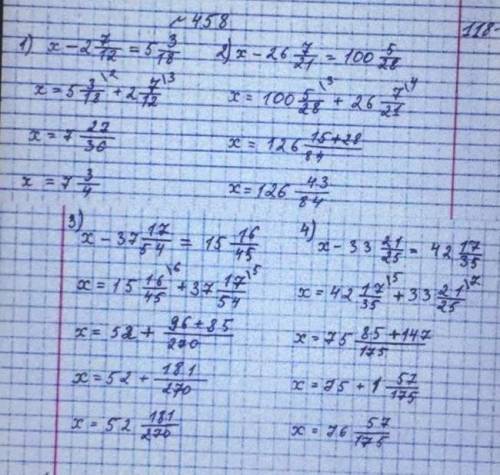 №458
118-
1) x - 2 7/12 = 5 3/18
x = 5 3/18 \2 + 2 7/12 \3
x = 7 27/36
x = 7 3/4
2) x - 26 7/21 = 100 5/28
x = 100 5/28 \3 + 26 7/21 \4
x = 126 15+28/84
x = 126 43/84
3)
x - 37 17/54 = 15 16/45
x = 15 16/45 \6 + 37 17/54 \5
x = 52 + 96+85/270
x = 52 + 181/270
x = 52 181/270
4)
x - 33 21/25 = 42 17/35
x = 42 17/35 \5 + 33 21/25 \7
x = 75 85+147/175
x = 75 + 1 57/175
x = 76 57/175